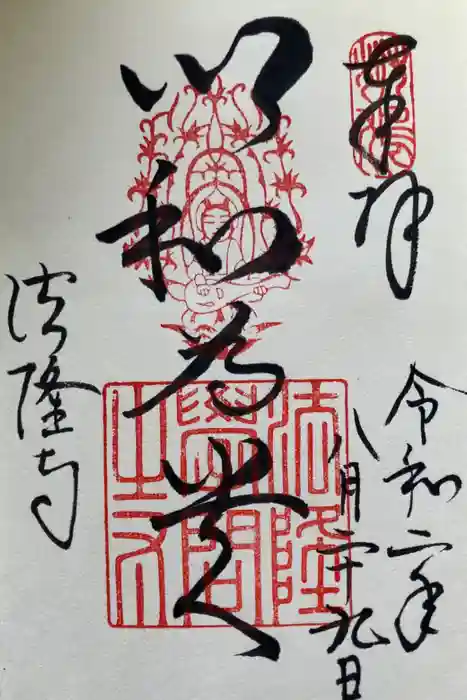 奉拝
令和二年
八月二十九日
以和為貴
法隆学問之印
法隆寺